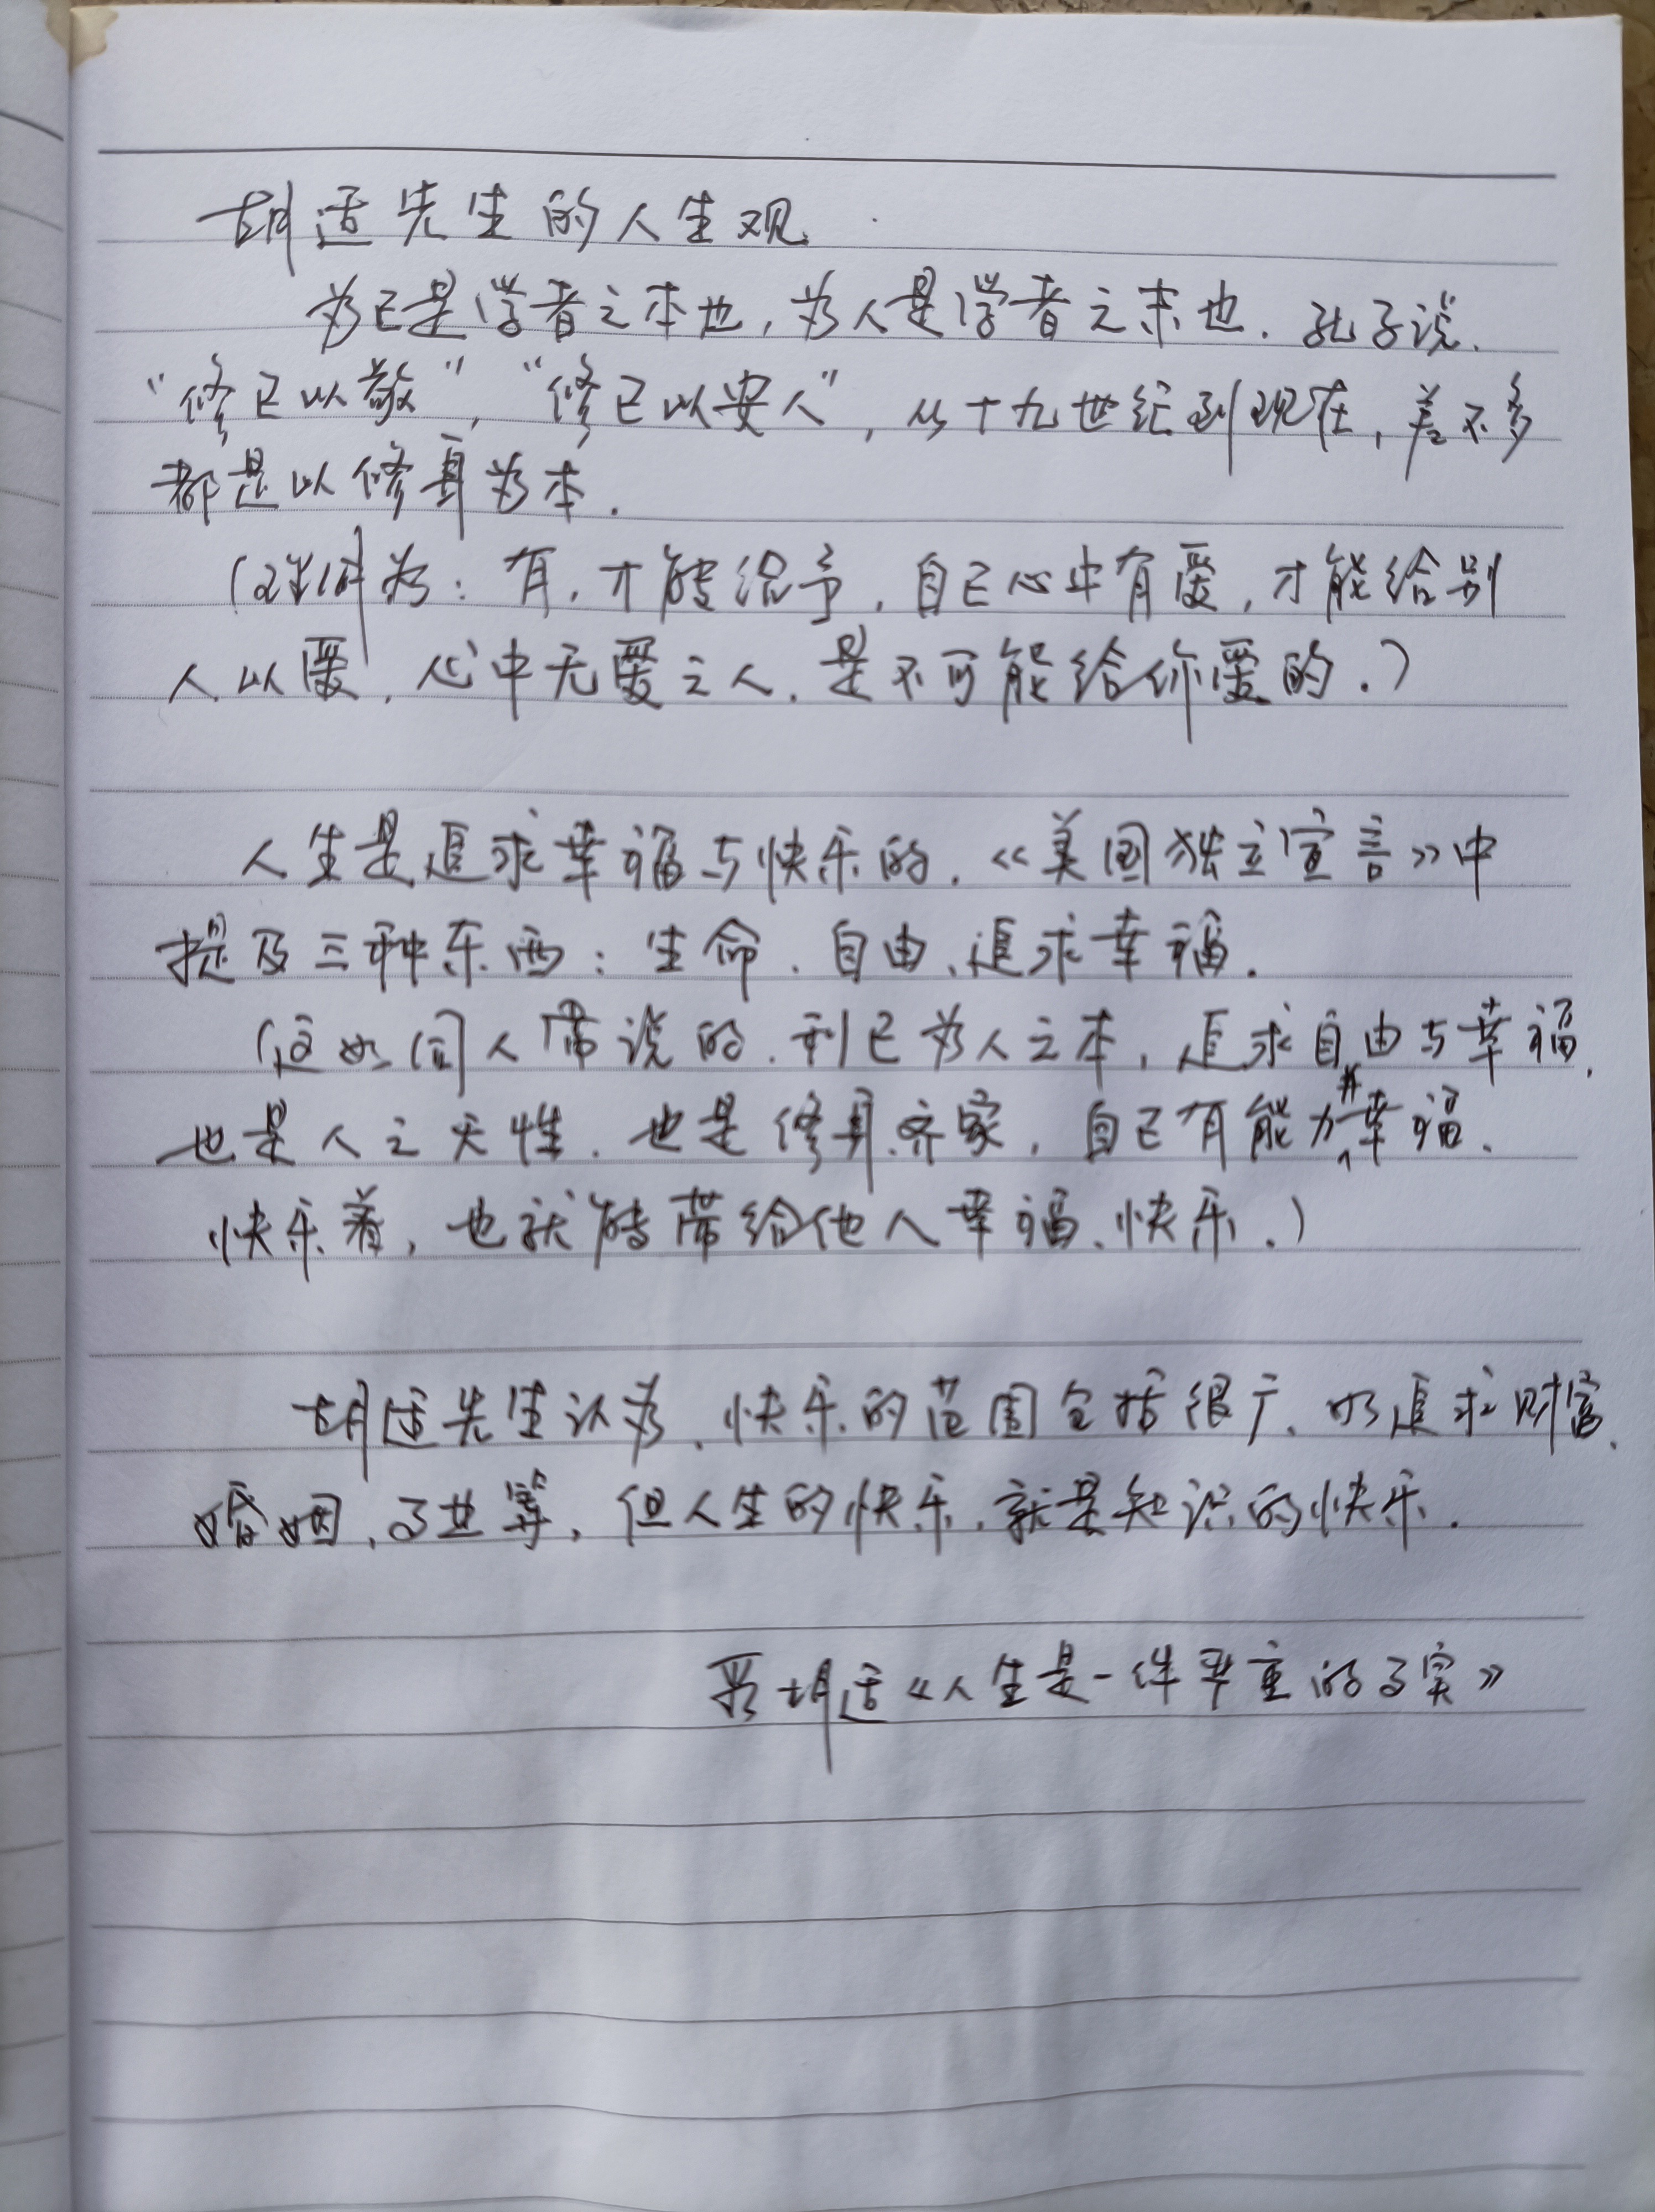 胡适先生的人生观
为己是学者之本也,为人是学者之末也.孔子说.
“修己以敬”,“修己以安人”,从十九世纪到现在,差不多
都是以修身为本.
(理解为:有,才能给予,自己心中有爱,才能给别
人以爱,心中无爱之人.是不可能给你爱的.)
人生是追求幸福与快乐的.《美国独立宣言》中
提及三种东西:生命、自由、追求幸福.
(这如同人常说的.利己为人之本,追求自由与幸福.
也是人之天性.也是修身、齐家,自己有能力并幸福.
快乐着,也就能带给他人幸福、快乐.)
胡适先生认为、快乐的范围包括很广、如追求财富、
婚姻、事业等,但人生的快乐.就是知识的快乐.
胡适《人生是一件严重的事实》